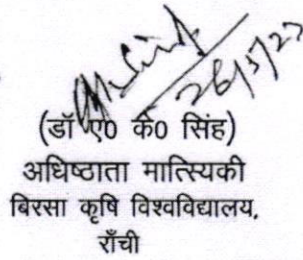 26/5/22
(डॉ ए0 के0 सिंह)
अधिष्ठाता मात्स्यिकी
बिरसा कृषि विश्वविद्यालय,
राँची